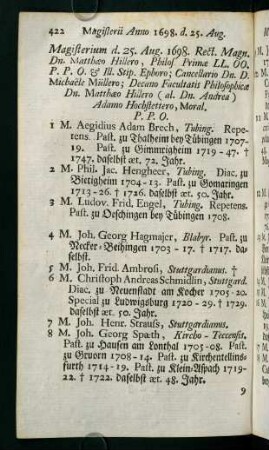 422 Magisterii Anno 1698. d. 25. Aug.
Magisterium d. 25. Aug. 1698. Rect. Magn.
Dn. Matthæo Hillero, Philos. Primæ LL. OO.
P. P. O. & Ill. Stip. Ephoro; Cancellario Dn. D.
Michaële Müllero; Decano Facultatis Philosophicæ
Dn. Matthæo Hillero (al. Dn. Andrea)
Adamo Hochstettero, Moral.
P. P. O.
1 M. Aegidius Adam Brech, Tubing. Repe-
tens. Past. zu Thalheim bey Tübingen 1707-
19. Past. zu Gimmrigheim 1719 - 47. †
1747. daselbst æt. 72. Jahr.
2 M. Phil. Jac. Hengheer, Tubing. Diac. zu
Bietigheim 1704-13. Past. zu Gomaringen
1713-26. † 1726. daselbst æt. 50. Jahr.
3 M. Ludov. Frid. Engel, Tubing. Repetens.
Past. zu Oeschingen bey Tübingen 1708.
4 M. Joh. Georg Hagmajer, Blabyr. Past. zu
Necker-Beihingen 1703 - 17. † 1717. da-
selbst.
5 M. Joh. Frid. Ambrosi, Stuttgardianus. †
6 M. Christoph Andreas Schmidlin, Stuttgard.
Diac. zu Neuenstadt am Kocher 1705-20.
Special zu Ludwigsburg 1720-29. † 1729.
daselbst æt. 50. Jahr.
7 M. Joh. Henr. Strauss, Stuttgardianus.
8 M. Joh. Georg Spæth, Kircho-Teccensis.
Past. zu Hausen am Lonthal 1705-08. Past.
zu Gruorn 1708-14. Past. zu Kirchentellins-
furth 1714-19. Past. zu Klein-Aspach 1719-
22. † 1722. daselbst æt. 48. Jahr.
9